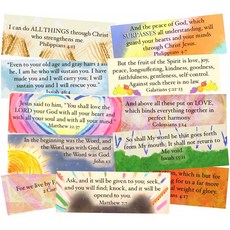 I can do ALL THINGS through Christ
who strengthens me.
Philippians 4:13
And the peace of God, which
SURPASSES all understanding, will
guard your hearts and your minds
through Christ Jesus.
Philippians
"Even to your old age and gray hairs I am
he, I am he who will sustain you. I have
made you and I will carry you; I will
sustain you and I will rescue you."
Isaiah
But the fruit of the Spirit is love, joy,
peace, longsuffering, kindness, goodness,
faithfulness, gentleness, self-control.
Against such there is no law
Galatians 5:22-23
Jesus said to him, "You shall love the
LORD your God with all your heart and
with all your soul and with all your mind"
Matthew 22:37
And above all these put on LOVE,
which binds everything together
in perfect harmony
Colossians 3:14
In the beginning was the Word,
and the Word was with God,
and the Word was God.
John
So shall My word be that goes forth
from My mouth; It shall not return
to Me void.
Isaiah 55:11
For we live by
Ask, and it will be given to you; seek,
and you will find; knock, and it will be
opened to you.
Matthew 7:7
which is but for
for us a far more
al weight of glory.